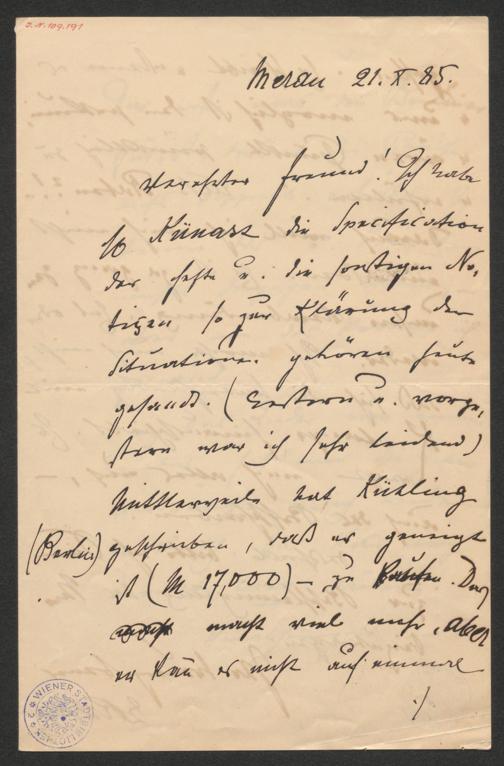 J.N. 109.191
Meran 21. X. 85.
Verehrter Freund! Ich habe
Künast die Specification
der Hefte u. die sonstigen No-
tizen so zur Klärung der
Situation gehören heute
gesandt. (Gestern u. vorge-
stern war ich sehr leidend)
Mittlerweile hat Kühling
(Berlin) geschrieben, daß er geneigt
ist (M 17,000) – zu kaufen. Das
macht viel mehr, aber
er kan̄ es nicht auf einmal
./
WIENER STADTBIBLIOTHEK